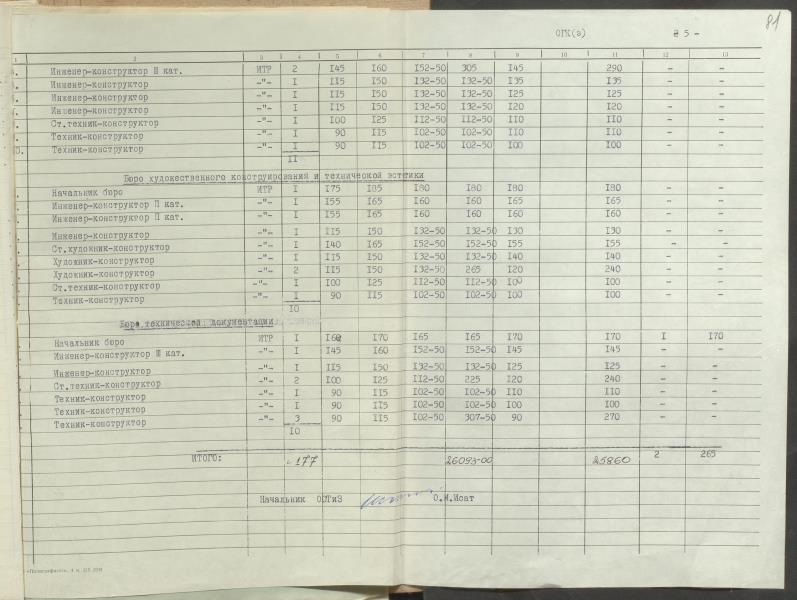 81
ОГК(э) № 5 -
1 2 3 4 5 6 7 8 9 10 11 12 13
Инженер-конструктор Ш кат. ИТР 2 I45 I60 I52-50 305 I45 290 - -
Инженер-конструктор -"- I II5 I50 I32-50 I32-50 I35 I35 - -
Инженер-конструктор -"- I II5 I50 I32-50 I32-50 I25 I25 - -
Инженер-конструктор -"- I II5 I50 I32-50 I32-50 I20 I20 - -
Ст.техник-конструктор -"- I I00 I25 II2-50 II2-50 II0 II0 - -
Техник-конструктор -"- I 90 II5 I02-50 I02-50 II0 II0 - -
0. Техник-конструктор -"- I 90 II5 I02-50 I02-50 I00 I00 - -
II
Бюро художественного конструирования и технической эстетики
Начальник бюро ИТР I I75 I85 I80 I80 I80 I80 - -
Инженер-конструктор П кат. -"- I I55 I65 I60 I60 I65 I65 - -
Инженер-конструктор П кат. -"- I I55 I65 I60 I60 I60 I60 - -
Инженер-конструктор -"- I II5 I50 I32-50 I32-50 I30 I30 - -
Ст.художник-конструктор -"- I I40 I65 I52-50 I52-50 I55 I55 - -
Художник-конструктор -"- I II5 I50 I32-50 I32-50 I40 I40 - -
Художник-конструктор -"- 2 II5 I50 I32-50 265 I20 240 - -
Ст.техник-конструктор -"- I I00 I25 II2-50 II2-50 I00 I00 - -
Техник-конструктор -"- I 90 II5 I02-50 I02-50 I00 I00 - -
I0
Бюро технической документации
Начальник бюро ИТР I I60 I70 I65 I65 I70 I70 I I70
Инженер-конструктор Ш кат. -"- I I45 I60 I52-50 I52-50 I45 I45 - -
Инженер-конструктор -"- I II5 I50 I32-50 I32-50 I25 I25 - -
Ст.техник-конструктор -"- 2 I00 I25 II2-50 225 I20 240 - -
Техник-конструктор -"- I 90 II5 I02-50 I02-50 II0 II0 - -
Техник-конструктор -"- I 90 II5 I02-50 I02-50 I00 I00 - -
Техник-конструктор -"- 3 90 II5 I02-50 307-50 90 270 - -
I0
ИТОГО: 177 26093-00 25860 2 265
Начальник ООТиЗ О.И.Исат